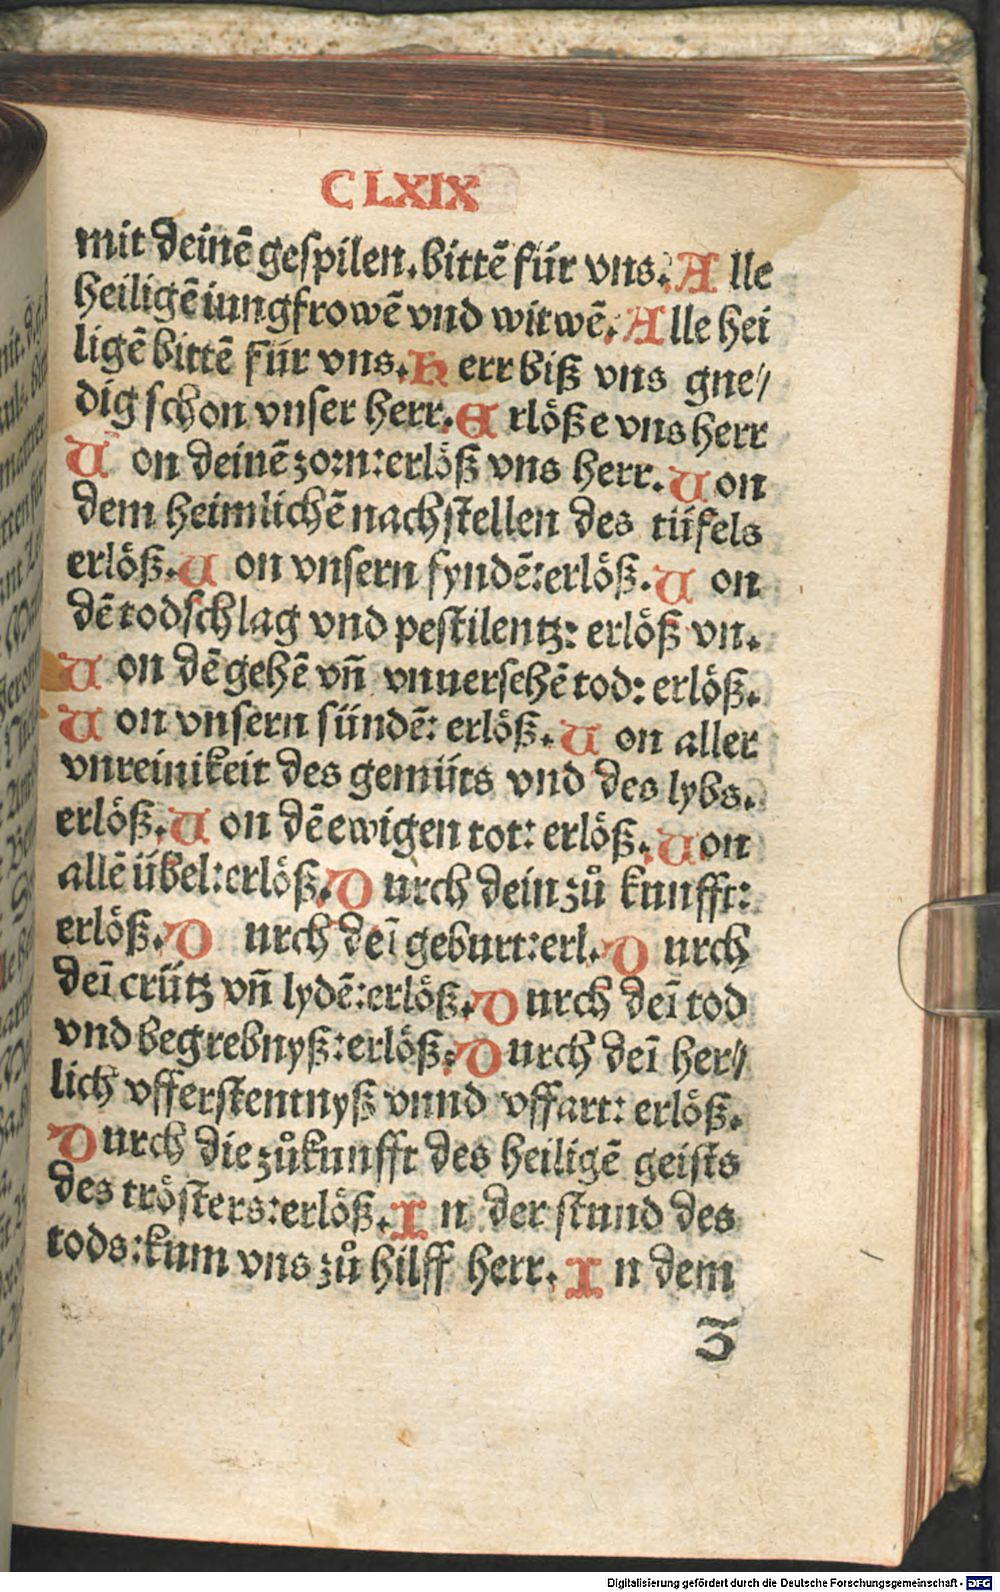 CLXIX
mit deinē gespilen. bittē für vns. Alle
heiligē iungfrowē vnd witwē. Alle hei
ligē bittē für vns. Herr biß vns gne⸗
dig schon vnser herr. Erlöße vns herr
Von deinē zorn: erlöß vns herr. Von
dem heimlichē nachstellen des tüfels
erlöß. Von vnsern fyndē: erlöß. Von
dē todschlag vnd pestilentz: erlöß vn.
Von dē gehē vñ vnuersehē tod: erlöß.
Von vnsern sündē: erlöß. Von aller
vnreinikeit des gemüts vnd des lybs.
erlöß. Von dē ewigen tot: erlöß. Von
allē übel: erlöß. Durch dein zů kunfft:
erlöß. Durch deī geburt: erl. Durch
deī crütz vñ lydē: erlöß. Durch deī tod
vnd begrebnyß: erlöß. Durch deī her⸗
lich vfferstentnyß vnnd vffart: erlöß.
Durch die zůkunfft des heiligē geists
des trösters: erlöß. In der stund des
tods: kum vns zů hilff herr. In dem
Z
Digitalisierung gefördert durch die Deutsche Forschungsgemeinschaft - DFG